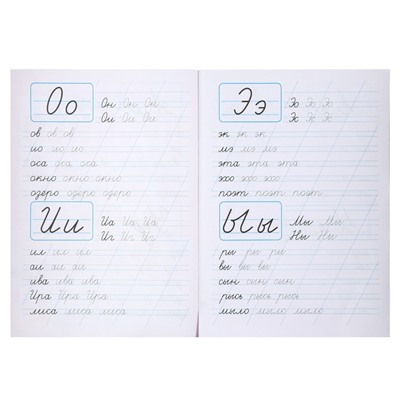 Оо
Он Он Он
Ои Ои Ои
ов ов ов
ио ио ио
оса оса оса
окно окно окно
озеро озеро озеро
Ии
Иа Иа Иа
Иг Иг Иг
ил ил ил
аи аи аи
ива ива ива
Ира Ира Ира
лиса лиса лиса
Ээ
Эо Эо Эо
Эх Эх Эх
эк эк эк
мэ мэ мэ
эта эта эта
эхо эхо эхо
поэт поэт поэт
Ыы
Мы Мы
Ны Ны
ры ры ры
вы вы вы
сын сын сын
рысь рысь рысь
мыло мыло мыло